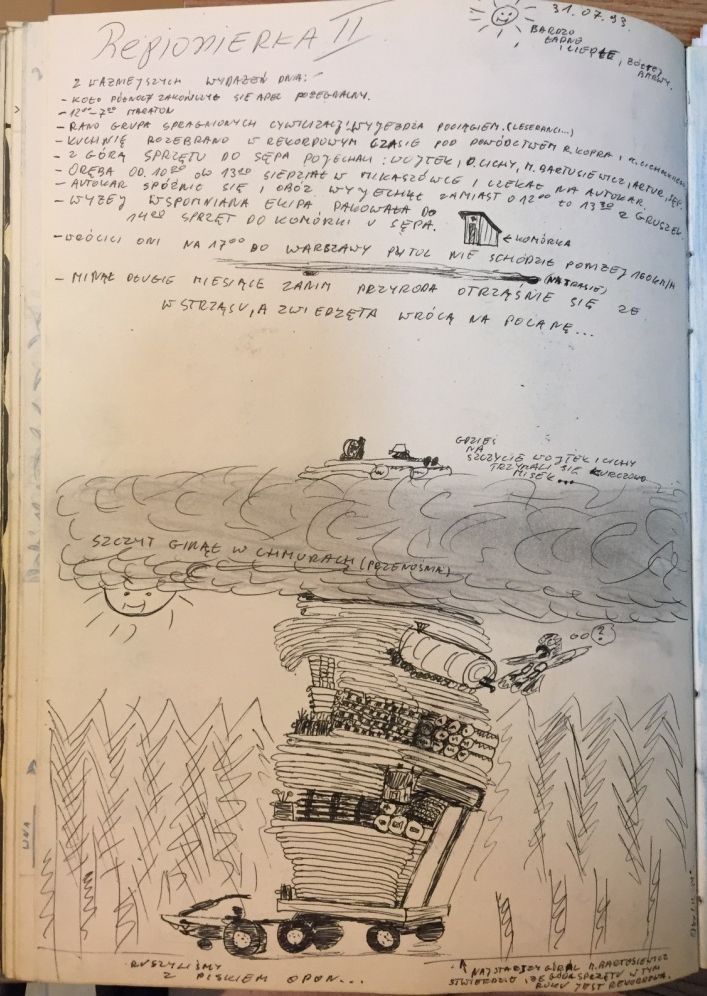 31.07.93
BARDZO
ŁADNE
I CIEPŁE, ŻÓŁTEJ
BARWY.
REPIONIERKA II
Z WAŻNIEJSZYCH WYDARZEŃ DNIA:
- KOŁO PÓŁNOCY ZAKOŃCZYŁ SIĘ APEL POŻEGNALNY.
- 12⁰⁰-7⁰⁰ MARATON
- RANO GRUPA SPRAGNIONYCH CYWILIZACJI WYJEŻDŻA POCIĄGIEM. (LESERANCI...)
- KUCHNIĘ ROZEBRANO W REKORDOWYM CZASIE POD DOWÓDZTWEM R. KOPRA I
- Z GÓRĄ SPRZĘTU DO SĘPA POJECHALI: WOJTEK, D. CICHY, M. BARTOSIEWICZ, ARTUR, SĘP.
- ORĘBA OD 10³⁰ DO 13³⁰ SIEDZIAŁ W MIKASZÓWCE I CZEKAŁ NA AUTOKAR.
- AUTOKAR SPÓŹNIŁ SIĘ I OBÓZ WYJECHAŁ ZAMIAST O 12⁰⁰ TO 13³⁰ Z GRUSZEK
- WYŻEJ WSPOMNIANA EKIPA PAKOWAŁA DO
14⁰⁰ SPRZĘT DO KOMÓRKI U SĘPA.
← KOMÓRKA
- WRÓCILI ONI NA 17⁰⁰ DO WARSZAWY NIE SCHODZIŁ PONIŻEJ 160KM/H
(NA TRASIE)
- MINĄŁ DŁUGIE MIESIĄCE ZANIM PRZYRODA OTRZĄŚNIE SIĘ ZE
WSTRZĄSU, A ZWIERZĘTA WRÓCĄ NA POLANĘ...
GDZIEŚ
NA
SZCZYCIE WOJTEK I CICHY
TRZYMALI SIĘ KURCZOWO
MISEK...
SZCZYT GINĄŁ W CHMURACH (PRZENOŚNIA)
?
RUSZYLIŚMY
Z PISKIEM OPON...
NAJSTARSZY GÓRAL M. BARTOSIEWICZ
STWIERDZIŁ, ŻE GÓRA SPRZĘTU W TYM
ROKU JEST REKORDOWA.